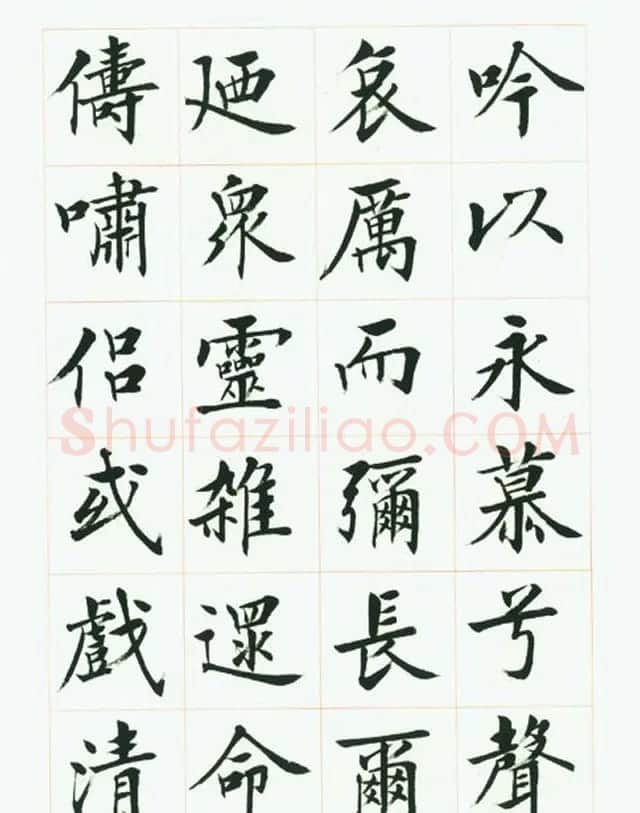 吟以永慕兮聲
哀厲而彌長爾
廼衆靈雜遝命
儔嘯侶或戲清
Shufaziliao.COM